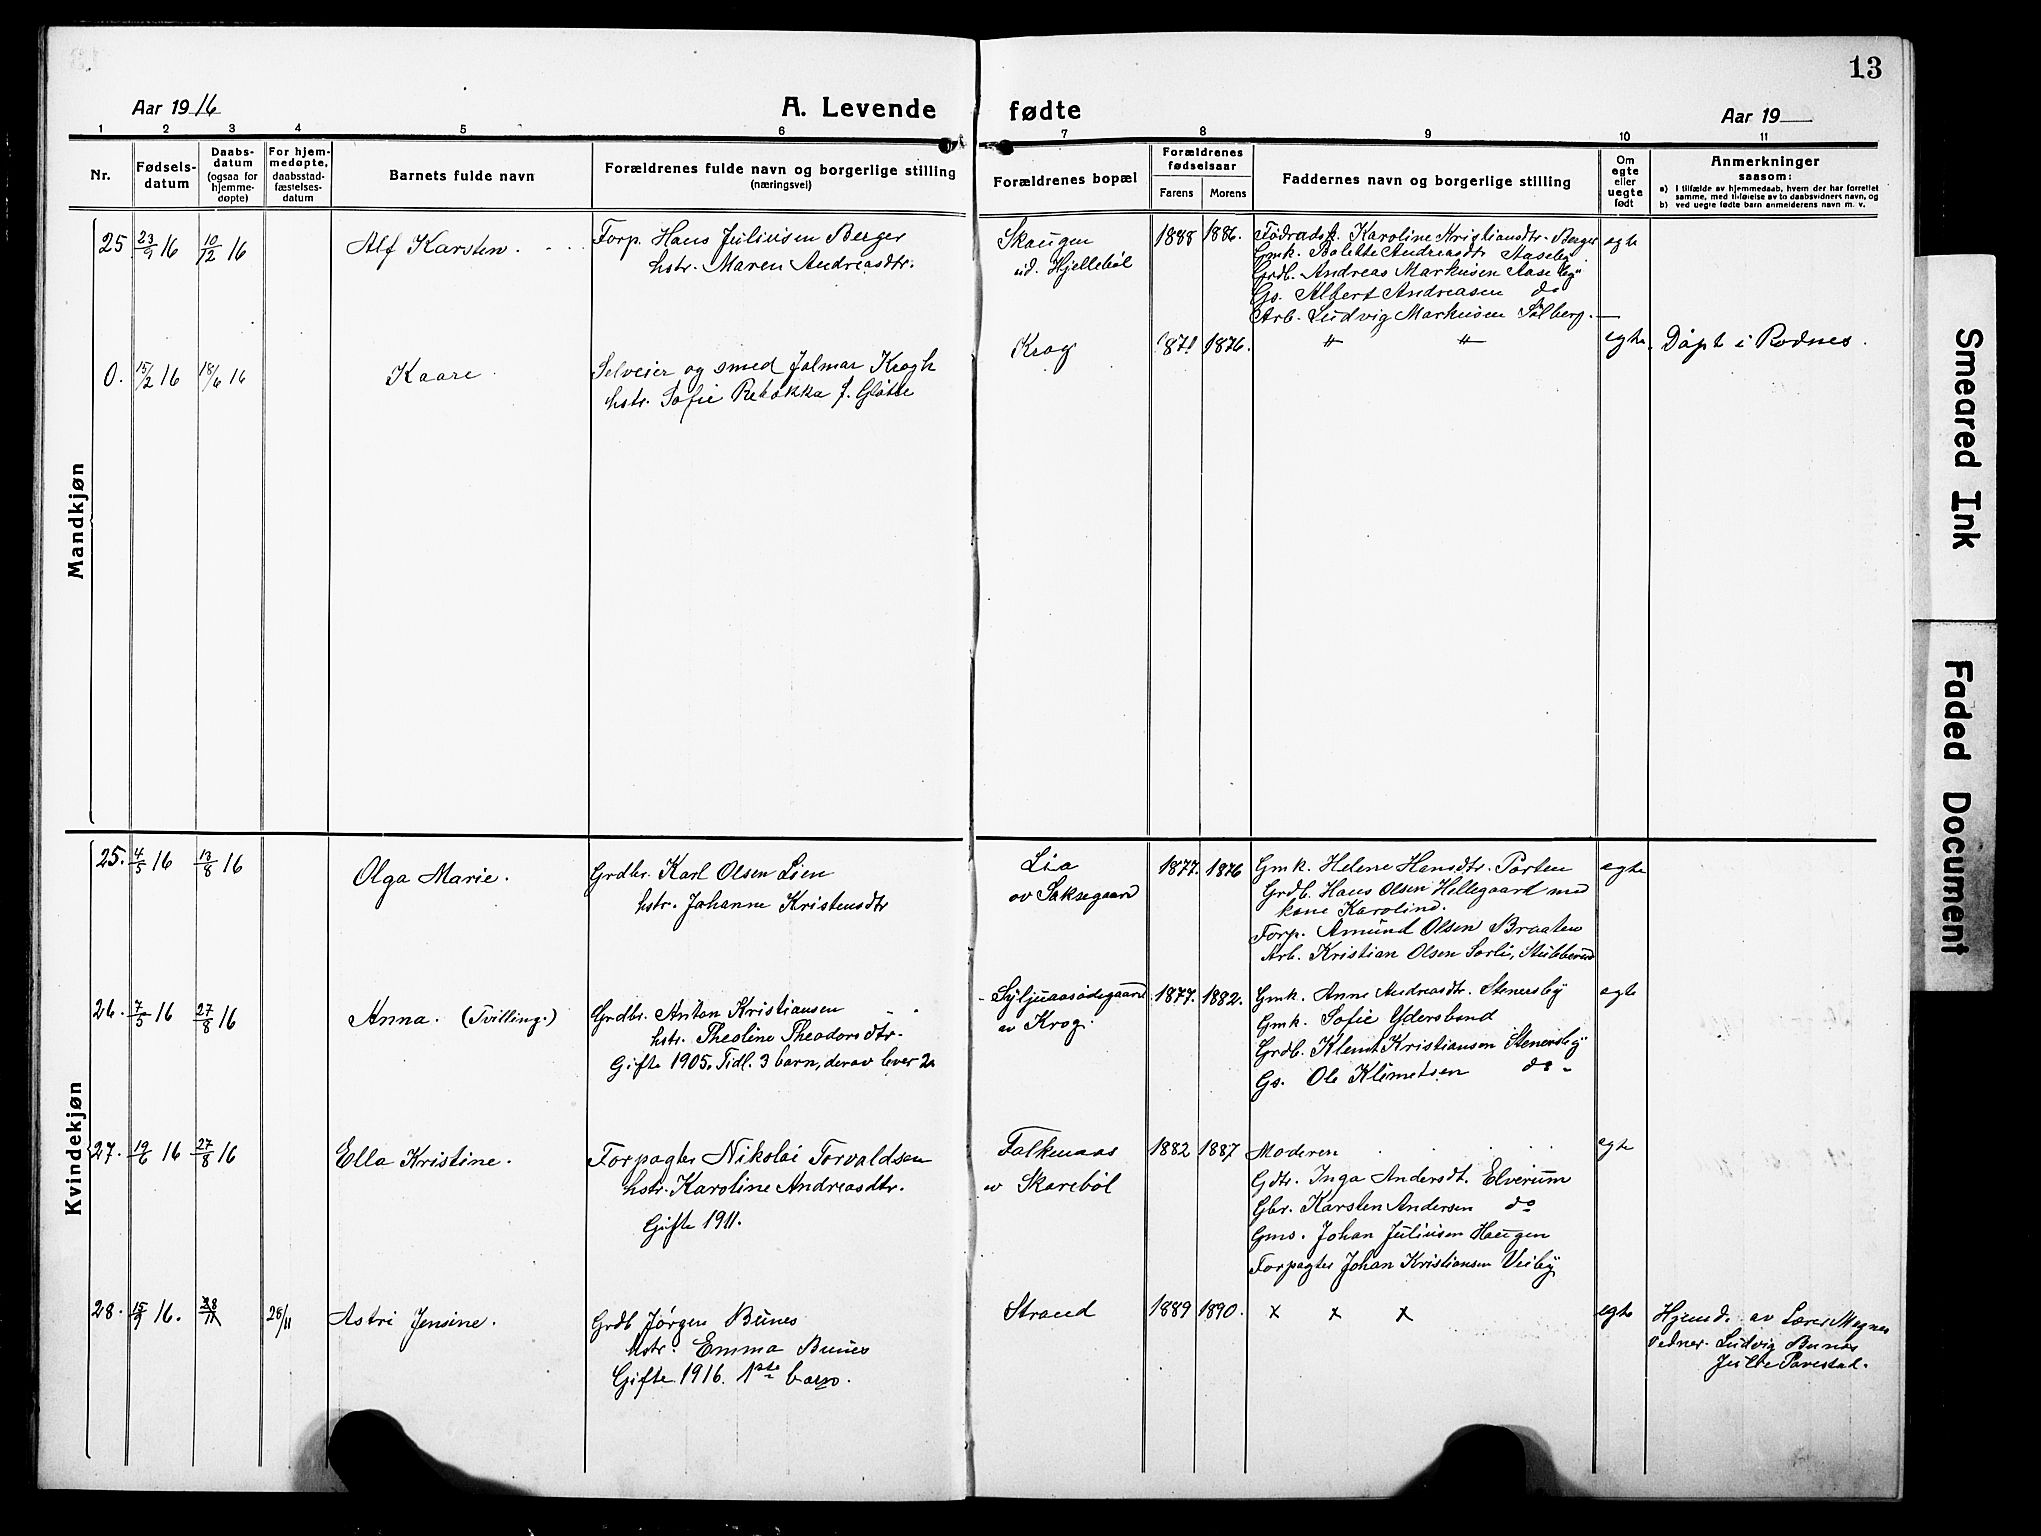 13
Aar 1916
A. Levende fødte
Aar 19
1 2 3 4 5 6 7 8 9 10 11
Nr.
Fødsels-
datum
Daabs-
datum
(ogsaa for
hjemme-
døpte)
For hjem-
medøpte,
daabsstad-
fæstelses-
datum
Barnets fulde navn
Forældrenes fulde navn og borgerlige stilling
(næringsvei)
Forældrenes bopæl
Forældrenes
fødselsaar
Farens Morens
Faddernes navn og borgerlige stilling
Om
egte
eller
uegte
født
Anmerkninger
saasom:
a) i tilfælde av hjemmedaab, hvem der har forrettet
samme, med tilføielse av to daabsvidners navn, og
b) ved uegte fødte barn anmelderens navn m. v.
Mandkjøn
25 23/9 16 10/12 16 Alf Karsten.
Forp. Hans Juliusen Berger
hstr. Maren Andreasdtr.
Skaugen
ud. Hjellebøl
1888 1886.
Karoline Kristiansdtr. Berger
Gmk. Bolette Andreasdtr Aaseby
Grdb. Andreas Markusen Aaseby
Gs. Albert Andreasen do
Arb. Ludvig Markusen Solberg.
egte
0. 15/2 16 18/6 16 Kaare
Selveier og smed Jalmar Krogh
hstr. Sofie Rebekka f. Gløtte
Krog
1871 1876.
" "
egte
Døpt i Rødnes.
Kvindekjøn
25. 4/5 16 13/8 16 Olga Marie.
Grdbr. Karl Olsen Lien
hstr. Johanne Kristensdtr
Lia
av Saksegaard
1877. 1876
Gmk. Helene Hansdtr. Porten
Grdb. Hans Olsen Hellegaard med
kone Karoline.
Forp. Amund Olsen Braaten
Arb. Kristian Olsen Sorli, Stubberud
egte
26. 7/5 16 27/8 16 Anna. (Tvilling.)
Grdbr. Anton Kristiansen
hstr. Theoline Theodorsdtr.
Gifte 1905. Tidl. 3 barn, derav lever 2
Syljuaasødegaard
av Krog.
1877. 1882.
Gmk. Anne Andreasdtr. Stenersby
Gmk. Sofie Ydersbond
Grdb. Klemt Kristiansen Stenersby
Gs. Ole Klemetsen do
egte
27. 19/6 16 27/8 16 Ella Kristine.
Forpagter Nikolai Torvaldsen
hstr. Karoline Andreasdtr.
Gifte 1911.
Falkenaas
av Skarebøl
1882 1887
Moderen
Gdtr. Inga Andersdt. Elverum
Gbr. Karsten Andersen do
Gms. Johan Juliusen Haugen
Forpagter Johan Kristiansen Veiby
egte
28. 15/9 16. 28/11 28/11 Astri Jensine.
Grdb Jørgen Bunes
hstr. Emma Bunes
Gifte 1916. 1ste barn.
Strand
1889 1890.
x x x
egte
Hjemd. av Lærer Magnus
Vedner. Ludvig Bunes
Julie Tavestad.
Smeared Ink
Faded Document